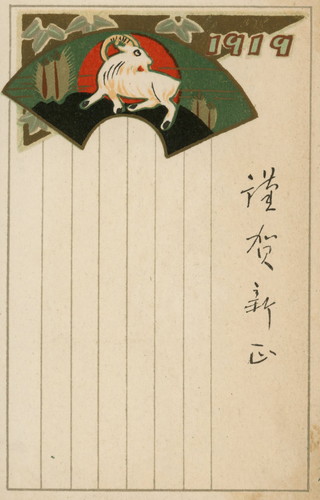 1919
謹賀新正